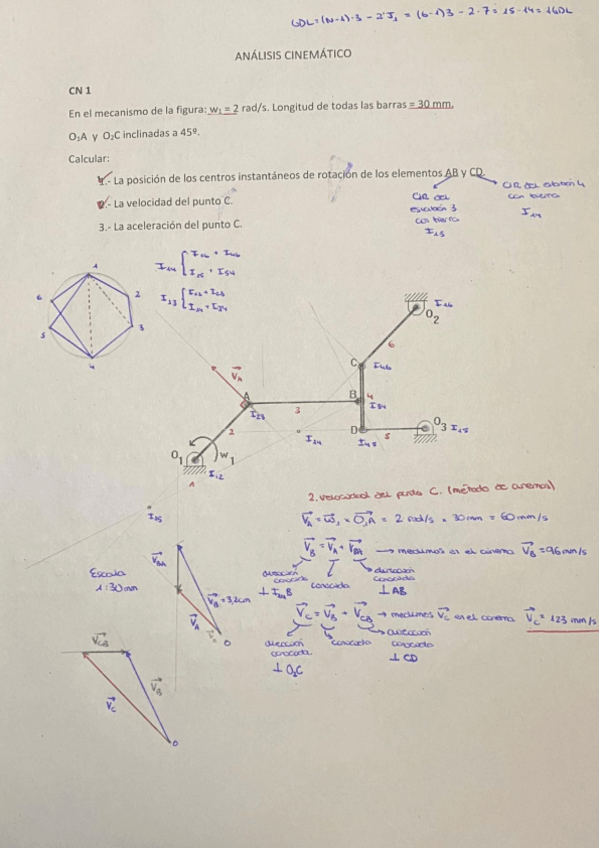 GDL=(N-1)·3 - 2·J₁ = (6-1)3 - 2·7 = 15-14 = 1GDL
ANÁLISIS CINEMÁTICO
CN 1
En el mecanismo de la figura: w₁ = 2 rad/s. Longitud de todas las barras = 30 mm.
O₁A y O₂C inclinadas a 45º.
Calcular:
1.- La posición de los centros instantáneos de rotación de los elementos AB y CD.
2.- La velocidad del punto C.
3.- La aceleración del punto C.
CIR del
eslabón 3
con tierra
I₁₃
CIR del eslabón 4
con tierra
I₁₄
I₁₄ { I₁₆ + I₄₆
I₁₅ + I₅₄
I₁₃ { I₁₂ + I₂₃
I₁₄ + I₃₄
1
2
3
4
5
6
I₁₆
O₂
6
C
I₄₆
V_A
A
B
4
I₃₄
3
I₂₃
2
D
I₄₅
5
O₃
I₁₅
I₁₄
O₁
w₁
I₁₂
1
I₁₃
2. velocidad del punto C. (método de cinemas)
V_A = ω₁ × O₁A = 2 rad/s × 30mm = 60mm/s
V_B = V_A + V_BA → medimos en el cinema V_B = 96mm/s
dirección conocida ⊥ I₁₃B
conocida
dirección conocida ⊥ AB
V_C = V_B + V_CB → medimos V_C en el cinema V_C = 123 mm/s
dirección conocida. ⊥ O₂C
conocida
dirección conocida ⊥ CD
Escala
1:30mm
V_BA
V_B = 3,2cm
V_A
O
V_CB
V_B
V_C
O